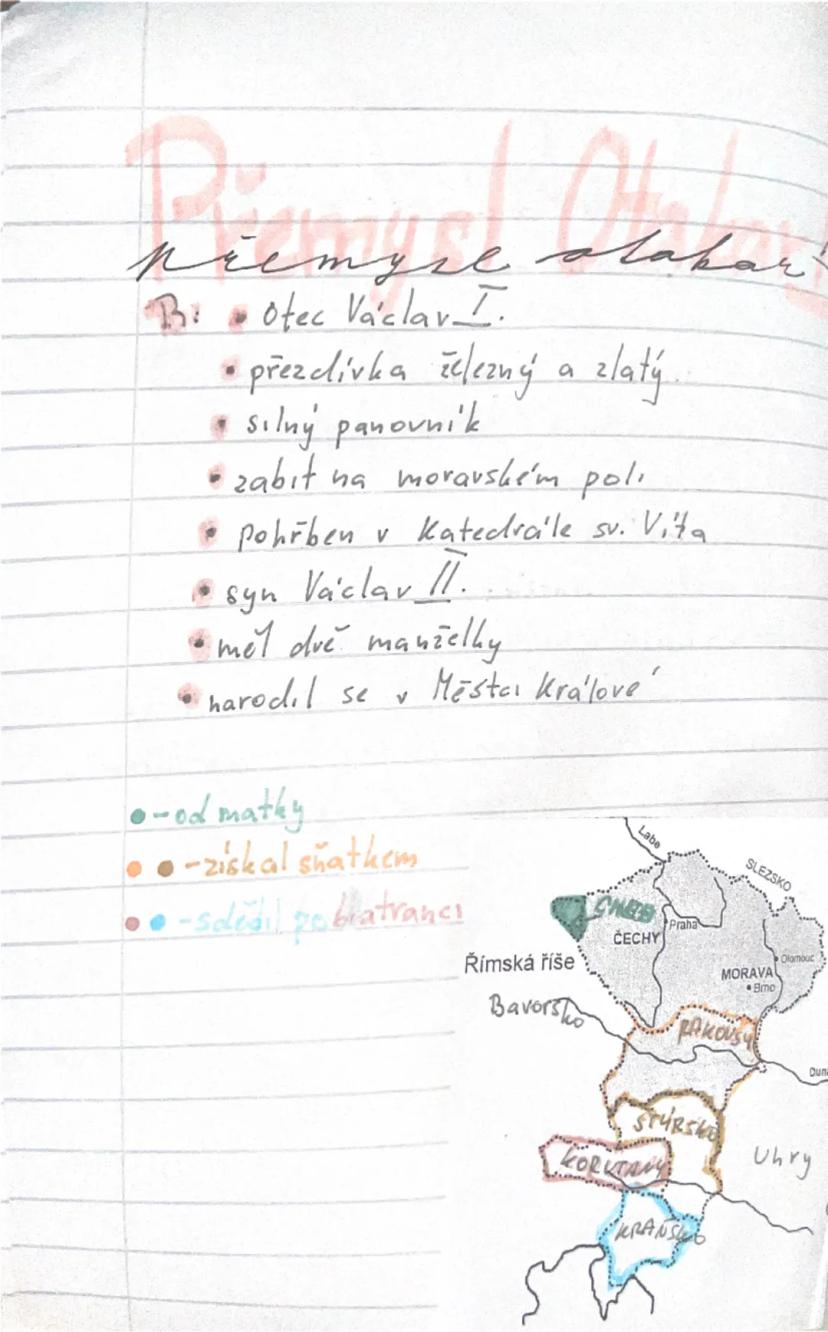 Přemysl Otakar
přemysl otakar
B: • Otec Václav I.
• přezdívka železný a zlatý
• silný panovník
• zabit na moravském poli
• pohřben v Katedrále sv. Víta
• syn Václav II.
• měl dvě manželky
• narodil se v Městci Králové
• - od matky
• • - získal sňatkem
• • - sdědil po bratranci
Labe
SLEZSKO
CHEB
Praha
ČECHY
Olomouc
Římská říše
MORAVA
Brno
Bavorsko
RAKOUSY
Duna
ŠTÝRSKO
KORUTANY
Uhry
KRAŇSKO